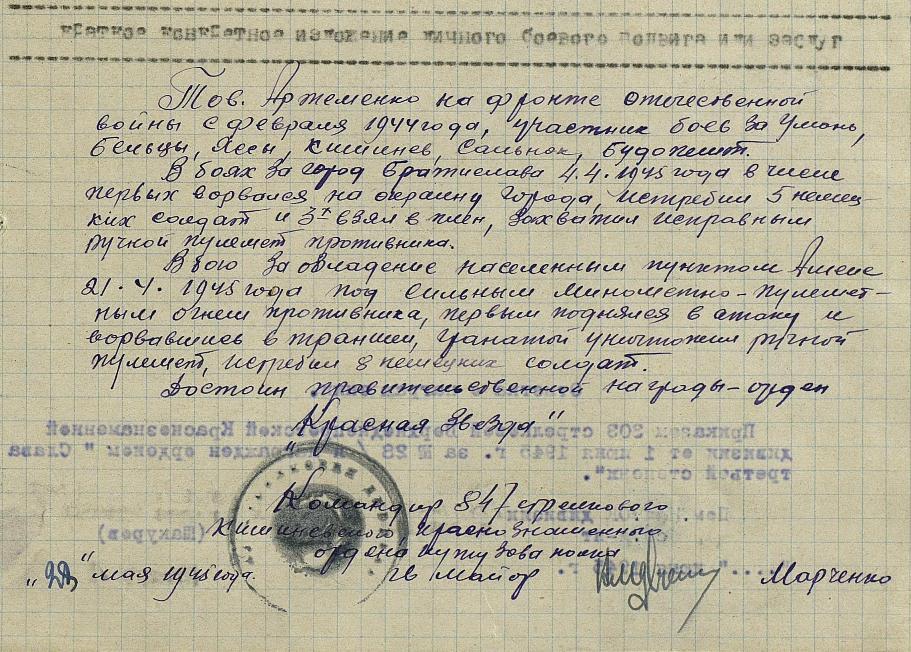 КРАТКОЕ КОНКРЕТНОЕ ИЗЛОЖЕНИЕ ЛИЧНОГО БОЕВОГО ПОДВИГА ИЛИ ЗАСЛУГ
Тов. Артеменко на фронте отечественной
войны с февраля 1944 года, участник боев за Умань,
Бельцы, Яссы, Кишинев, Сальнок, Будопешт.
В боях за город Братислава 4.4.1945 года в числе
первых ворвался на окраину города, истребил 5 немец-
ких солдат и 3х взял в плен, захватил исправным
ручной пулемет противника.
В бою за овладение населенным пунктом
21.4.1945 года под сильным минометно-пулемет-
ным огнем противника, первым поднялся в атаку и
ворвавшись в траншеи, гранатой уничтожил ручной
пулемет, истребил 8 немецких солдат.
Достоин правительственной награды-орден
"Красная Звезда"
Приказом 203 стрелковой Краснознаменной
дивизии от 1 июня 1945 г. за № 28 награжден орденом "Слава
третьей степени".
Командир 847 стрелкового
Кишиневского краснознаменного
ордена Кутузова полка
(Шакуров)
"22" мая 1945 года. гв майор Марченко